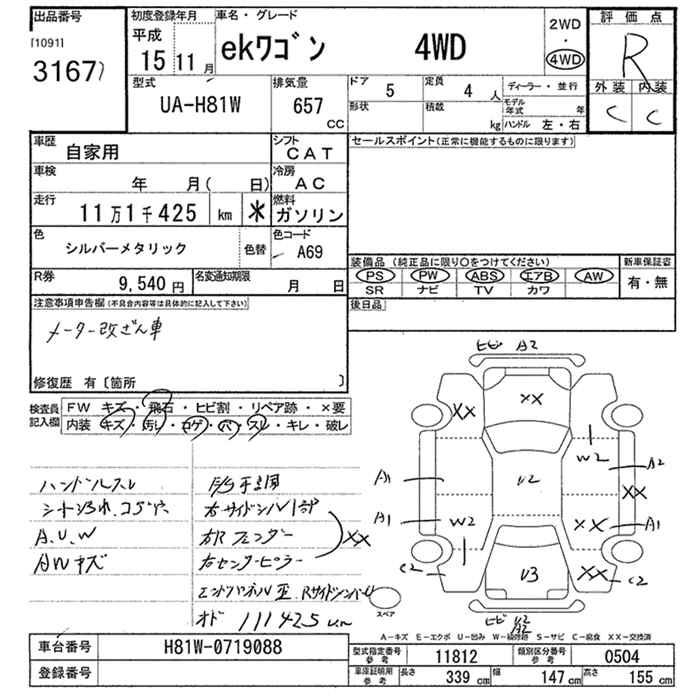 出品番号
[1091]
3167
初度登録年月
平成
15 11月
車名・グレード
ekワゴン 4WD
2WD
・
4WD
評価点
R
外装 内装
C C
型式
UA-H81W
排気量
657
cc
ドア 5
形状
定員 4 人
積載 kg
ディーラー・並行
モデル年式 年
ハンドル 左・右
車歴 自家用
車検 年 月( 日)
走行 11万1千425 km ＊
シフト CAT
冷房 AC
燃料 ガソリン
色 シルバーメタリック 色替
色コード A69
R券 9,540円
名変通知期限 月 日
セールスポイント(正常に機能するものに限ります)
装備品 (純正品に限り○をつけてください)
PS PW ABS エアB AW
SR ナビ TV カワ
新車保証書
有・無
後日品
注意事項申告欄(不具合内容等は具体的に記入して下さい)
メーター改ざん車
修復歴 有 [箇所 ]
検査員記入欄
FW キズ・飛石・ヒビ割・リペア跡・×要
内装 キズ・汚レ・コゲ・穴・スレ・キレ・破レ
ハンドルスレ
A.U.W
AWキズ
右サイドシル
右Rフェンダー
右センターピラー
XX
エンドパネル歪
オド 111425km
ヒビ A2
XX
XX
W2
A1
A2
V2
XX
A1
W2
XX
A1
C2
V3
XX
C2
スペア
ヒビ
A2
A－キズ E－エクボ U－凹み W－補修跡 S－サビ C－腐食 XX－交換済
車台番号 H81W-0719088
登録番号
型式指定番号 参考 11812
類別区分番号 参考 0504
車庫証明用 参考 長さ 339 cm 幅 147 cm 高さ 155 cm